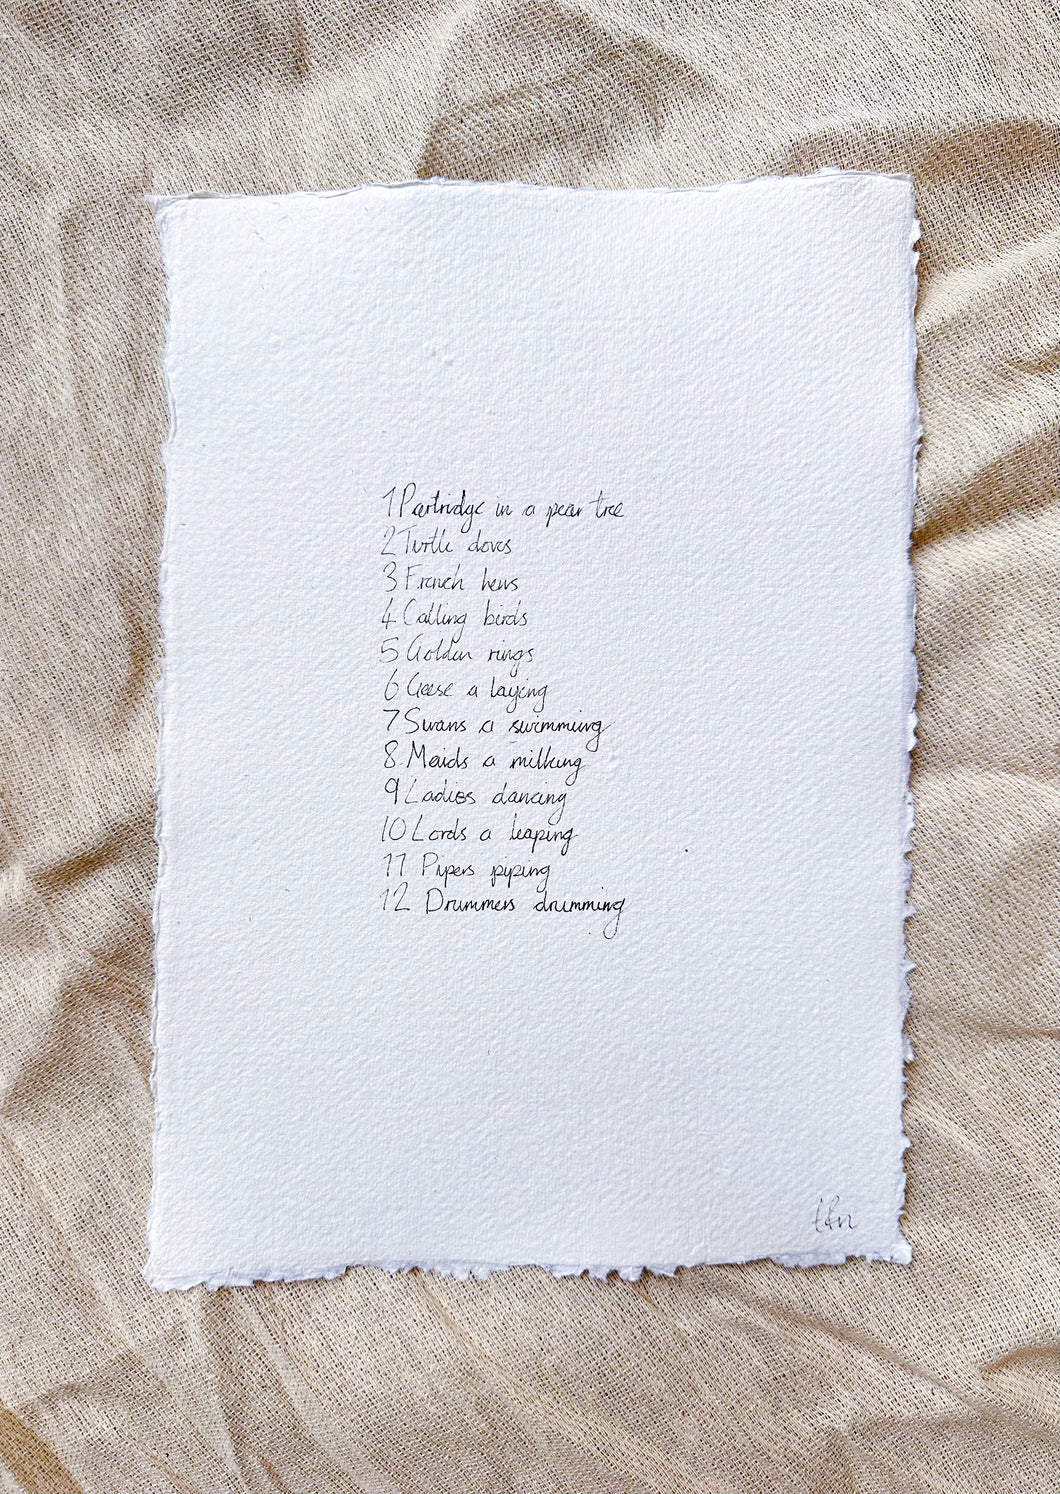 1 Partridge in a pear tree
2 Turtle doves
3 French hens
4 Calling birds
5 Golden rings
6 Geese a laying
7 Swans a swimming
8 Maids a milking
9 Ladies dancing
10 Lords a leaping
11 Pipers piping
12 Drummers drumming